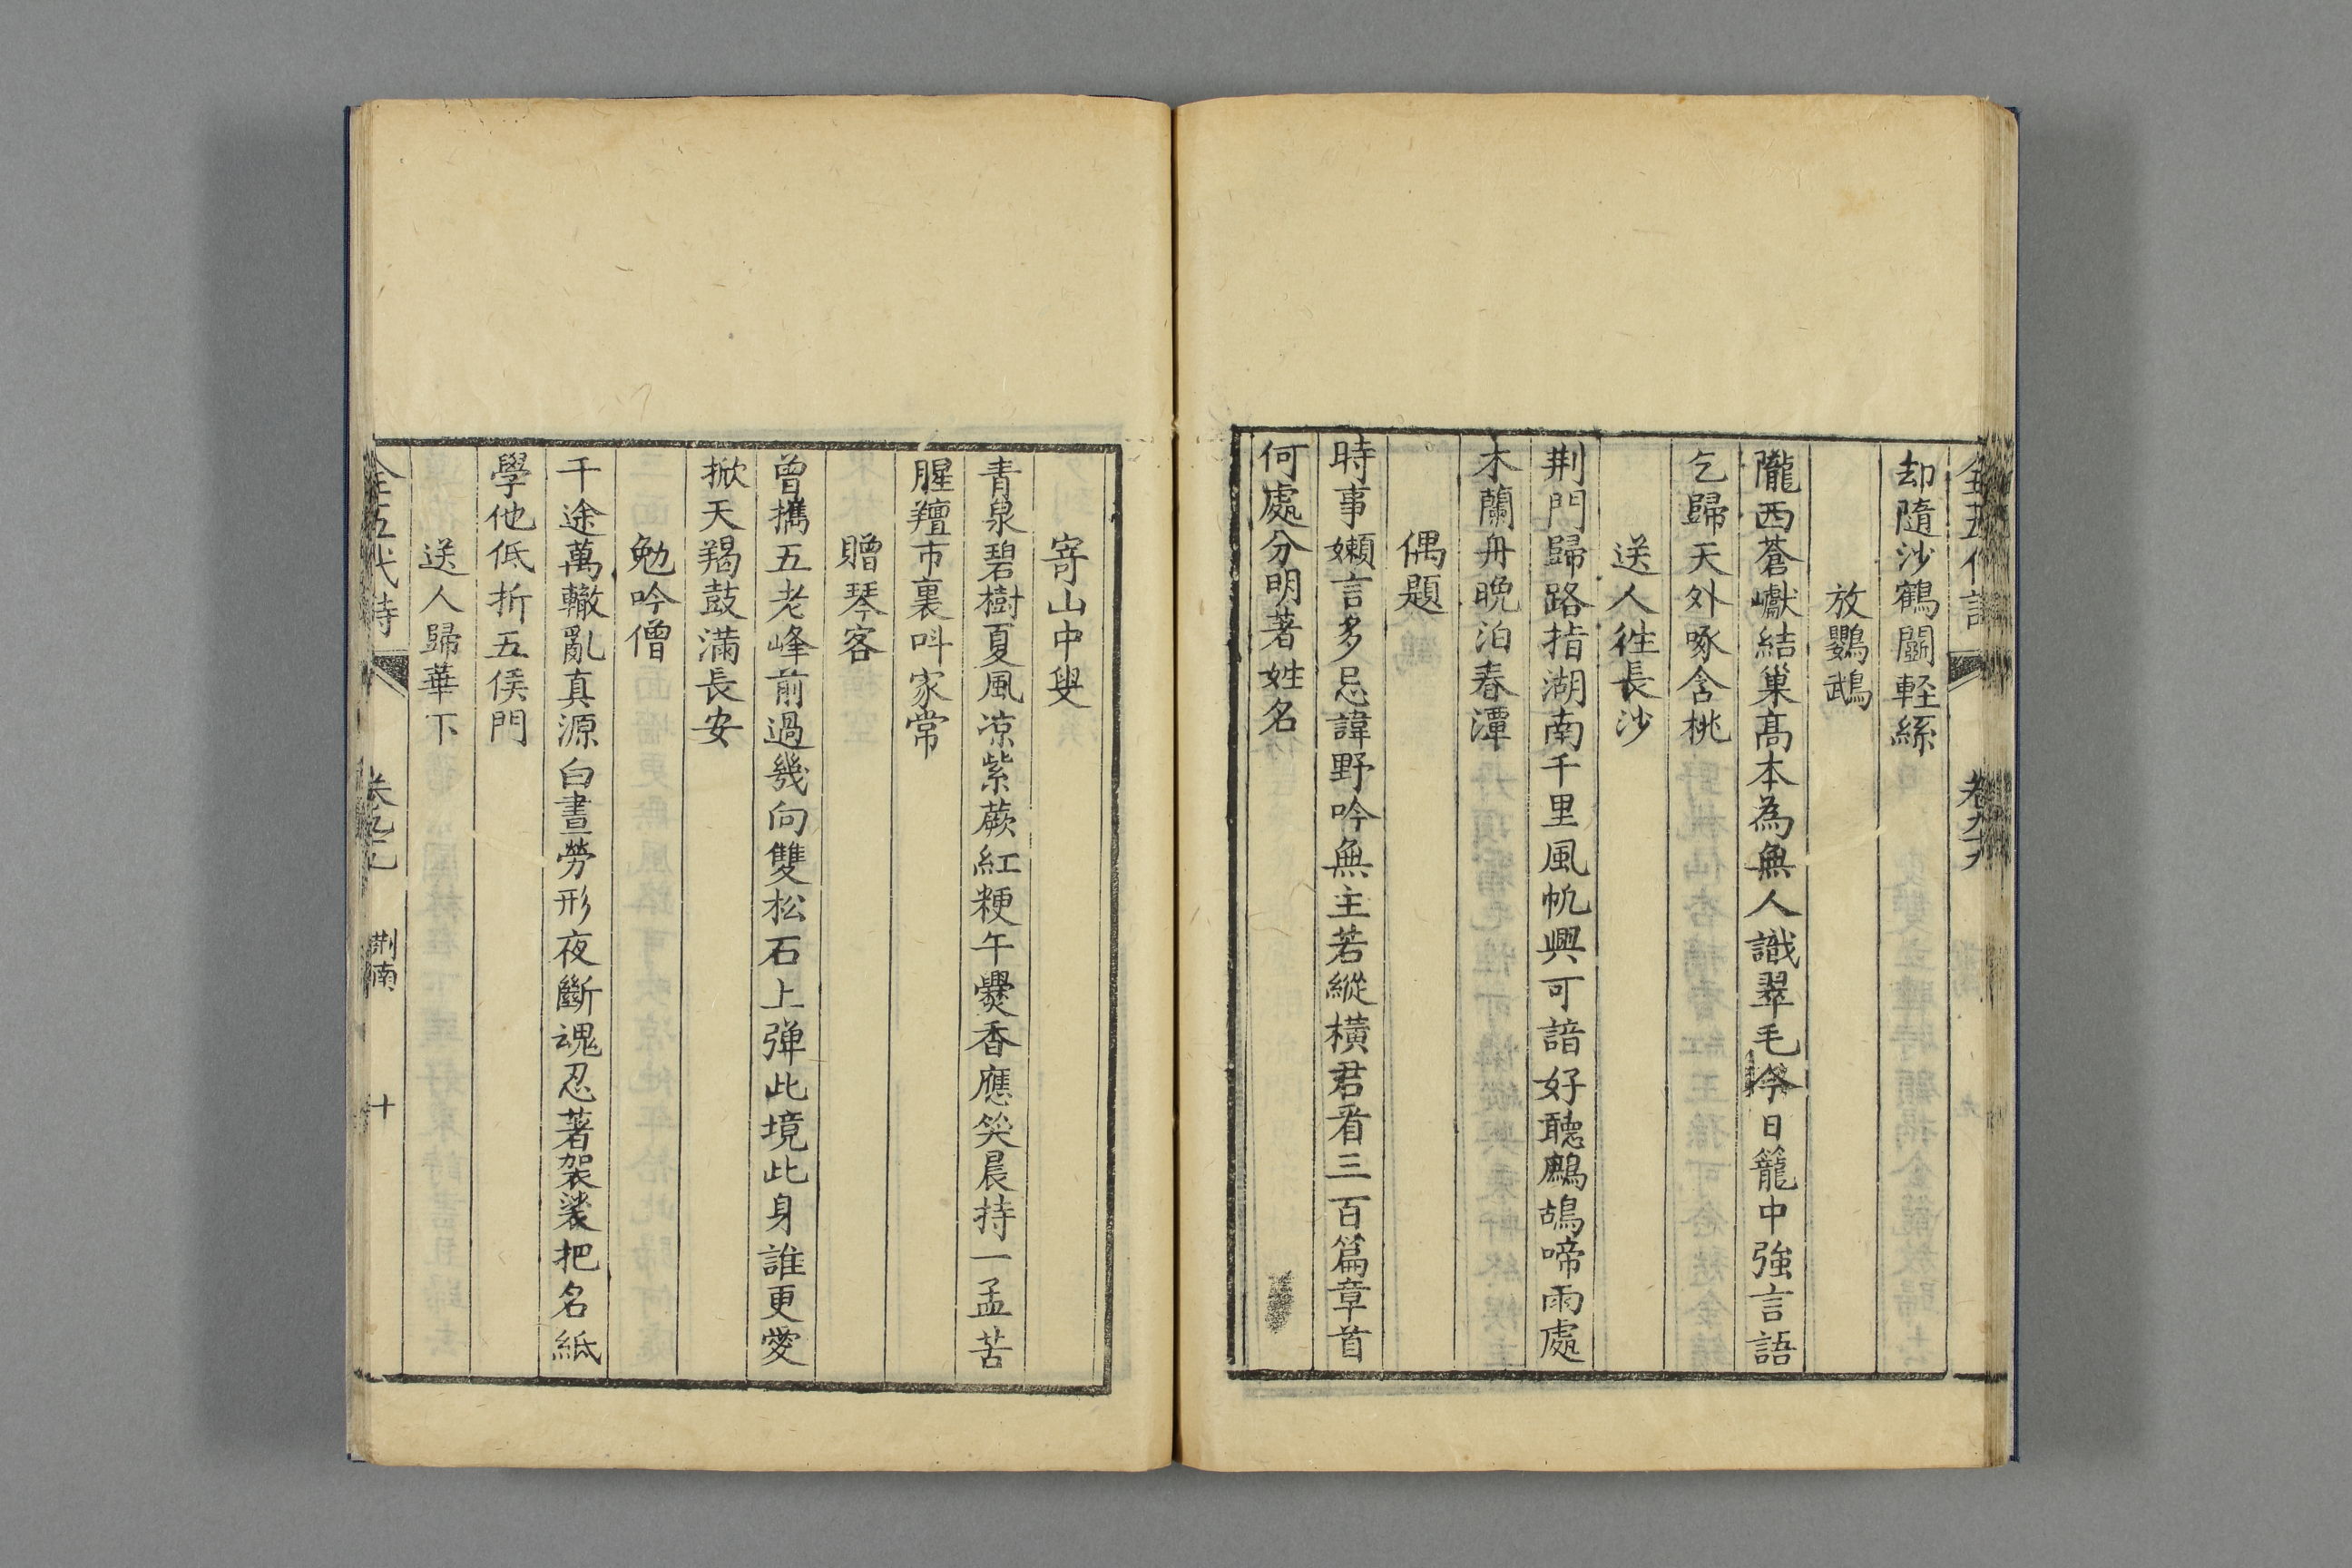 全五代詩
卷九十九
却隨沙鶴鬭輕絲
放鸚鵡
隴西蒼巘結巢高本為無人識翠毛今日籠中強言語
乞歸天外啄含桃
送人往長沙
荆門歸路指湖南千里風帆興可諳好聽鷓鴣啼雨處
木蘭舟晚泊春潭
偶題
時事嬾言多忌諱野吟無主若縱橫君看三百篇章首
何處分明著姓名
寄山中叟
青泉碧樹夏風凉紫蕨紅粳午爨香應笑晨持一盂苦
腥羶市裏呌家常
贈琴客
曾擕五老峰前過幾向雙松石上彈此境此身誰更愛
掀天羯鼓滿長安
勉吟僧
千途萬轍亂真源白晝勞形夜斷魂忍著袈裟把名紙
學他低折五侯門
送人歸華下
全五代詩
荆南
十